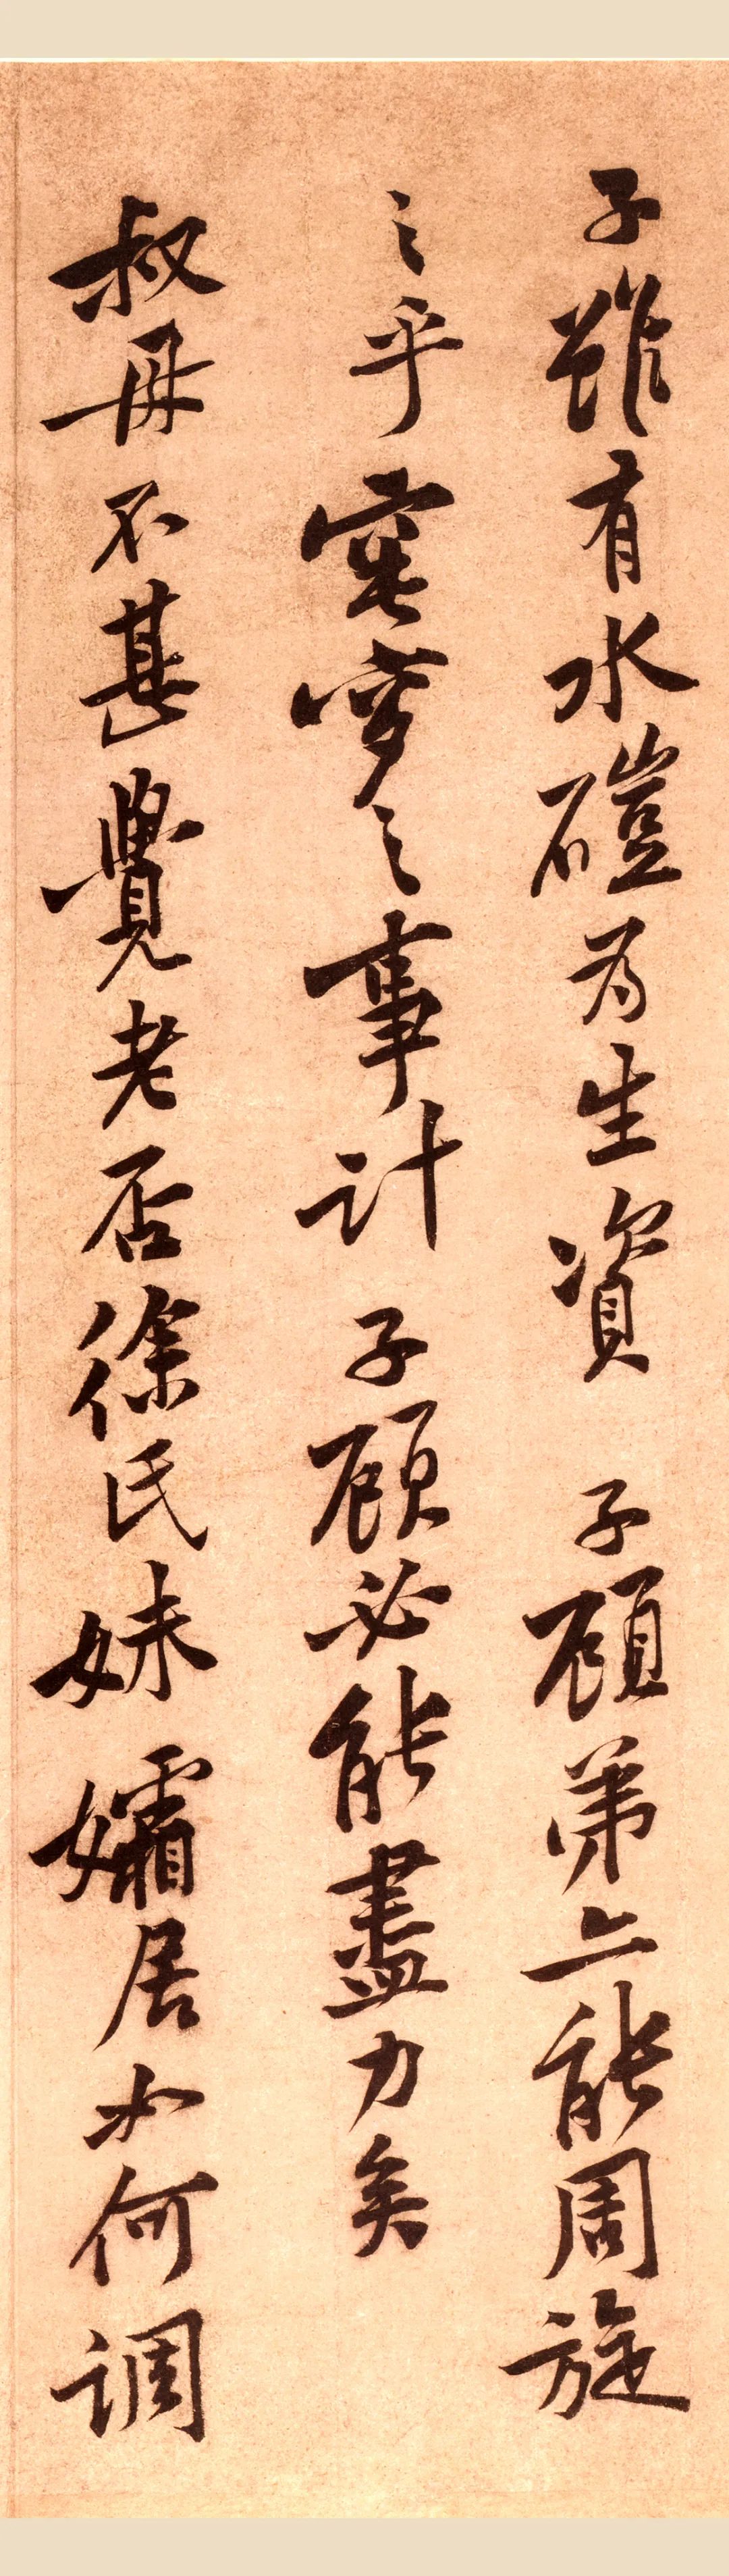 子雖有水磑为生資 子顧弟亠能周旋
之乎窀穸之事計 子顧必能盡力矣
叔母不甚覺老否徐氏妹孀居如何調